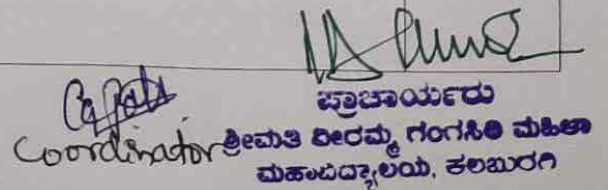 ಪ್ರಾಚಾರ್ಯರು
Coordinator ಶ್ರೀಮತಿ ವೀರಮ್ಮ ಗಂಗಸಿರಿ ಮಹಿಳಾ
ಮಹಾವಿದ್ಯಾಲಯ, ಕಲಬುರಗಿ